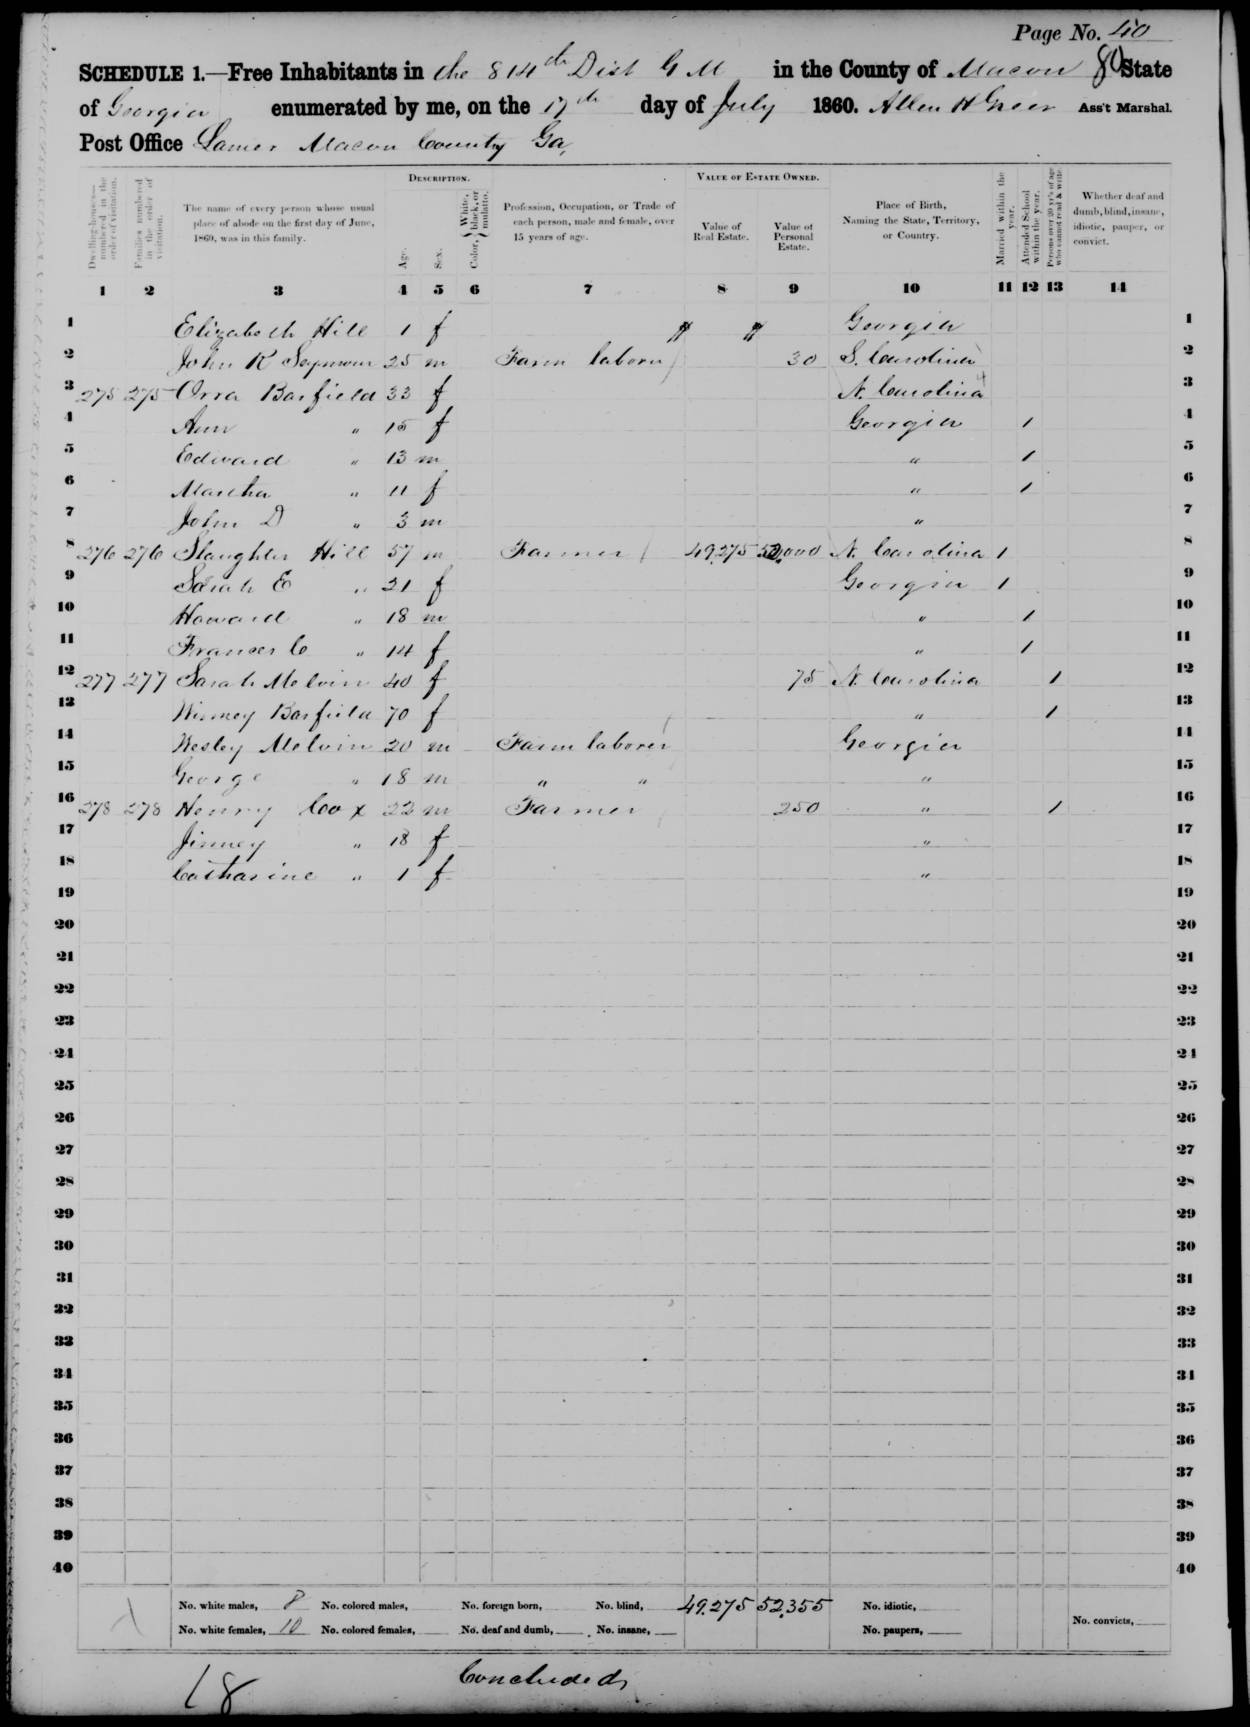 Page No. 40
SCHEDULE 1.—Free Inhabitants in the 814th Dist G M in the County of Macon 80 State
of Georgia enumerated by me, on the 17th day of July 1860. Allen H Greer Ass't Marshal.
Post Office Lamer Macon County Ga,
DESCRIPTION. VALUE OF ESTATE OWNED.
Dwelling-houses—numbered in the order of visitation. Families numbered in the order of visitation. The name of every person whose usual place of abode on the first day of June, 1860, was in this family. Age. Sex. Color, White, black, or mulatto. Profession, Occupation, or Trade of each person, male and female, over 15 years of age. Value of Real Estate. Value of Personal Estate. Place of Birth, Naming the State, Territory, or Country. Married within the year. Attended School within the year. Persons over 20 y'rs of age who cannot read & write. Whether deaf and dumb, blind, insane, idiotic, pauper, or convict.
1 2 3 4 5 6 7 8 9 10 11 12 13 14
1 Elizabeth Hill 1 f " " Georgia 1
2 John R Seymour 25 m Farm labore 30 S. Carolina 2
3 275 275 Orra Barfield 33 f N. Carolina 3
4 Ann " 15 f Georgia 1 4
5 Edward " 13 m " 1 5
6 Martha " 11 f " 1 6
7 John D " 3 m " 7
8 276 276 Slaughter Hill 57 m Farmer 49,275 52,000 N. Carolina 1 8
9 Sarah E " 21 f Georgia 1 9
10 Howard " 18 m " 1 10
11 Frances C " 14 f " 1 11
12 277 277 Sarah Melvin 40 f 75 N. Carolina 1 12
13 Winney Barfield 70 f " 1 13
14 Wesley Melvin 20 m Farm laborer Georgia 14
15 George " 18 m " " " 15
16 278 278 Henry Cox 22 m Farmer 250 " 1 16
17 Jinney " 18 f " 17
18 Catharine " 1 f " 18
19 19
20 20
21 21
22 22
23 23
24 24
25 25
26 26
27 27
28 28
29 29
30 30
31 31
32 32
33 33
34 34
35 35
36 36
37 37
38 38
39 39
40 40
No. white males, 8 No. colored males, No. foreign born, No. blind, 49,275 52,355 No. idiotic,
No. white females, 10 No. colored females, No. deaf and dumb, No. insane, No. paupers, No. convicts,
18 Concluded